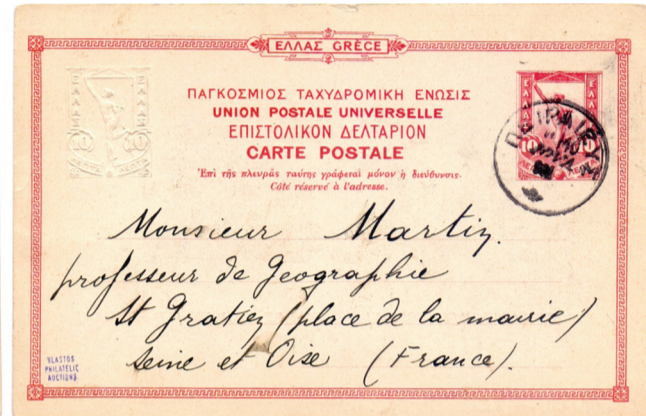 ΕΛΛΑΣ GRÈCE
ΠΑΓΚΟΣΜΙΟΣ ΤΑΧΥΔΡΟΜΙΚΗ ΕΝΩΣΙΣ
UNION POSTALE UNIVERSELLE
ΕΠΙΣΤΟΛΙΚΟΝ ΔΕΛΤΑΡΙΟΝ
CARTE POSTALE
Ἐπὶ τῆς πλευρᾶς ταύτης γράφεται μόνον ἡ διεύθυνσις.
Côté réservé à l'adresse.
ΕΛΛΑΣ
ΕΛΛΑΣ
10
10
ΛΕΠΤΑ
ΛΕΠΤΑ
10
Monsieur Martin.
professeur de Geographie
St Gratien (place de la mairie)
Seine et Oise (France).
VLASTOS
PHILATELIC
AUCTIONS